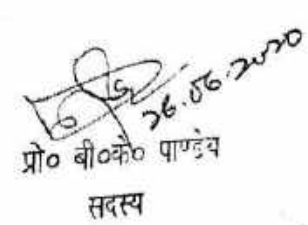 26.06.2020
प्रो० बी०के० पाण्डेय
सदस्य